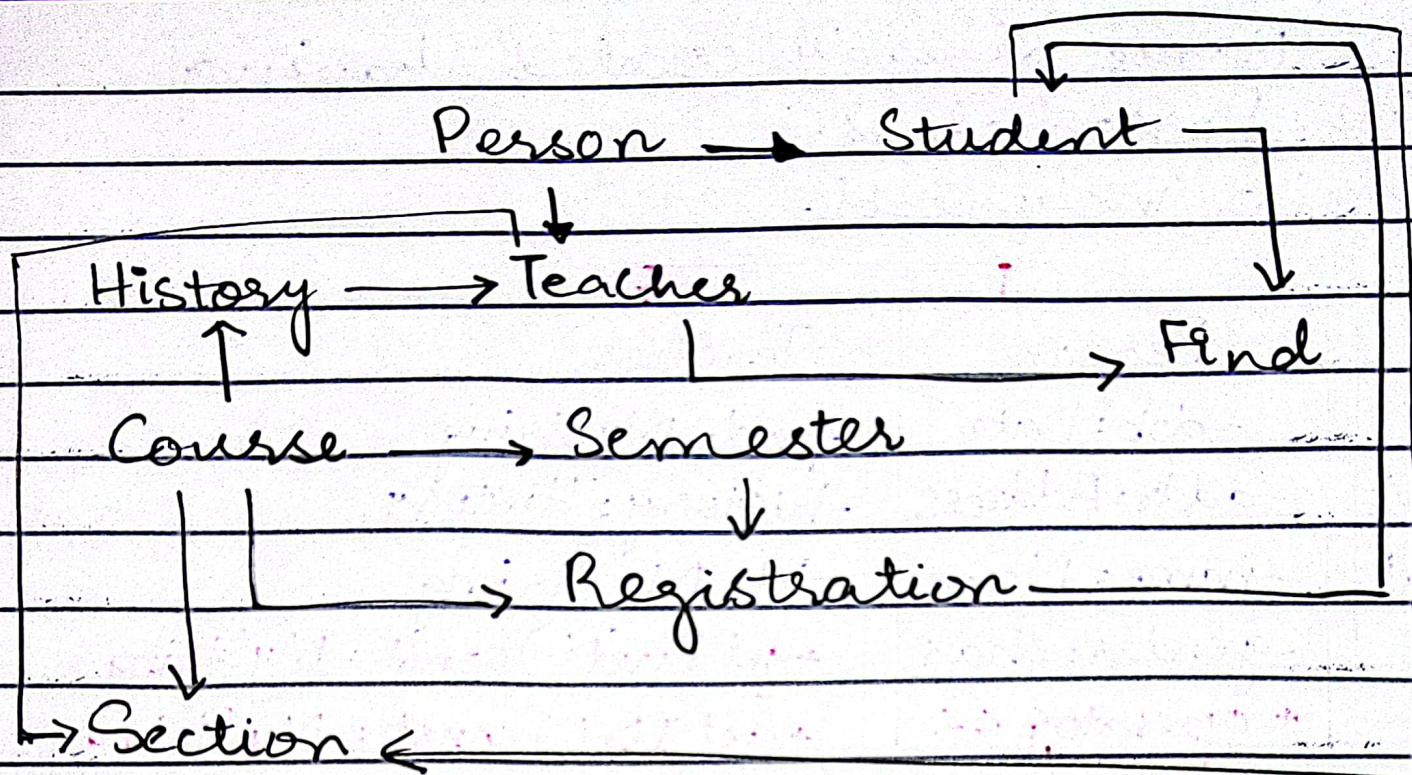 Person Student
History Teacher
Find
Course Semester
Registration
Section